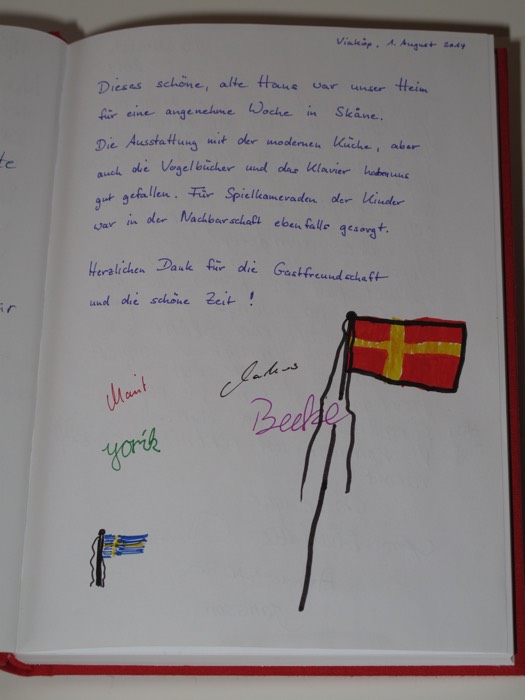 Vinköp, 1. August 2014
Dieses schöne, alte Haus war unser Heim
für eine angenehme Woche in Skåne.
Die Ausstattung mit der modernen Küche, aber
auch die Vogelbücher und das Klavier haben uns
gut gefallen. Für Spielkameraden der Kinder
war in der Nachbarschaft ebenfalls gesorgt.
Herzlichen Dank für die Gastfreundschaft
und die schöne Zeit!
Marit
yorik